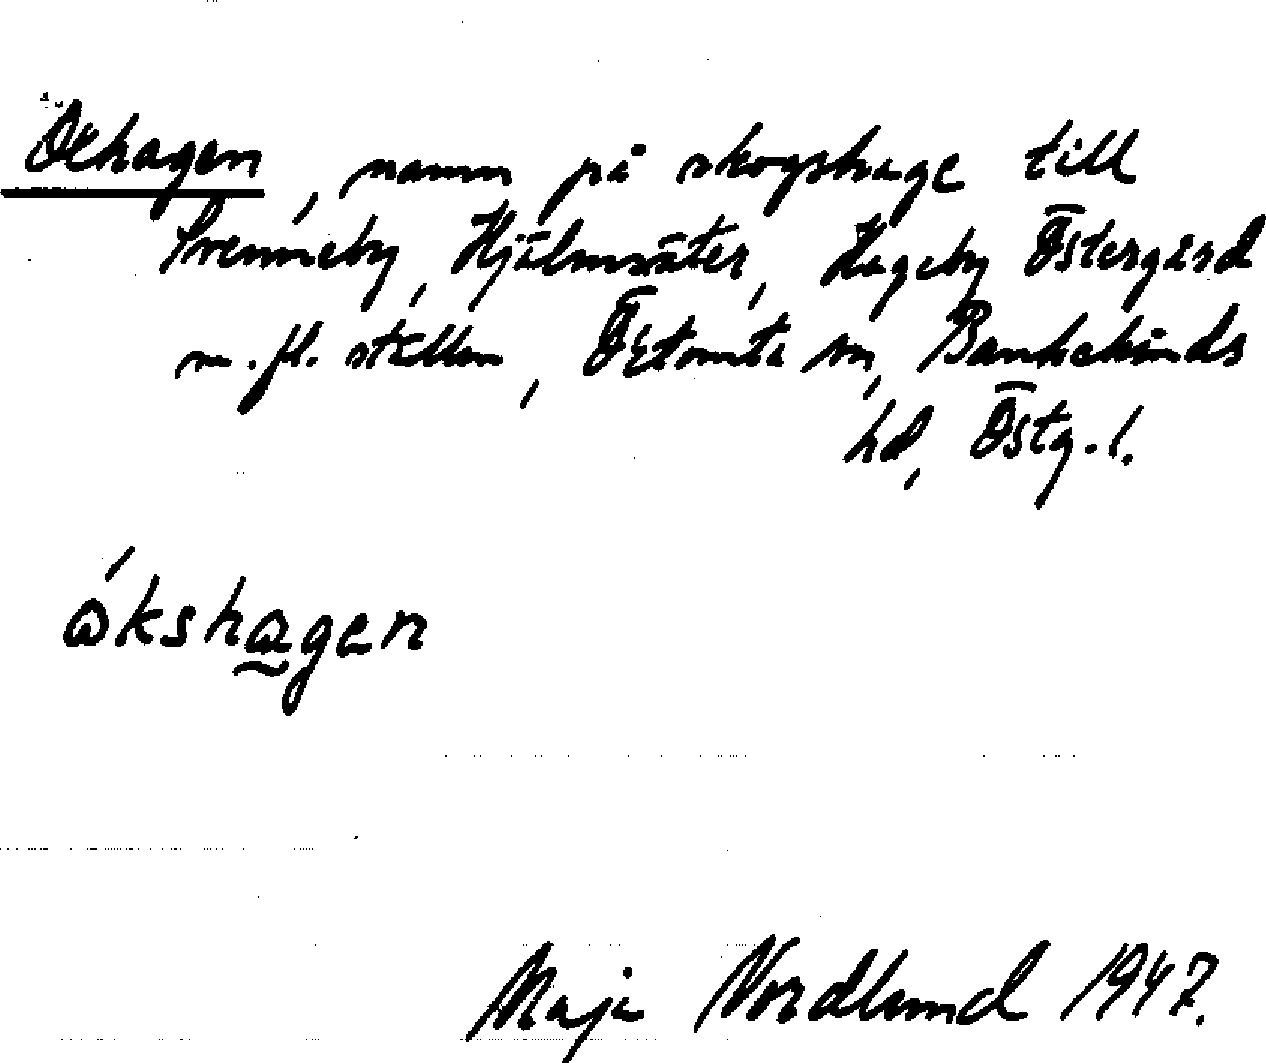 Oxhagen, namn på skogshage till
Svenneby, Hjälmsäter, Hageby Östergård
m.fl. ställen, Östomta sn, Bankekinds
hd, Östg.l.
ókshagen
Maja Nordlund 1947.